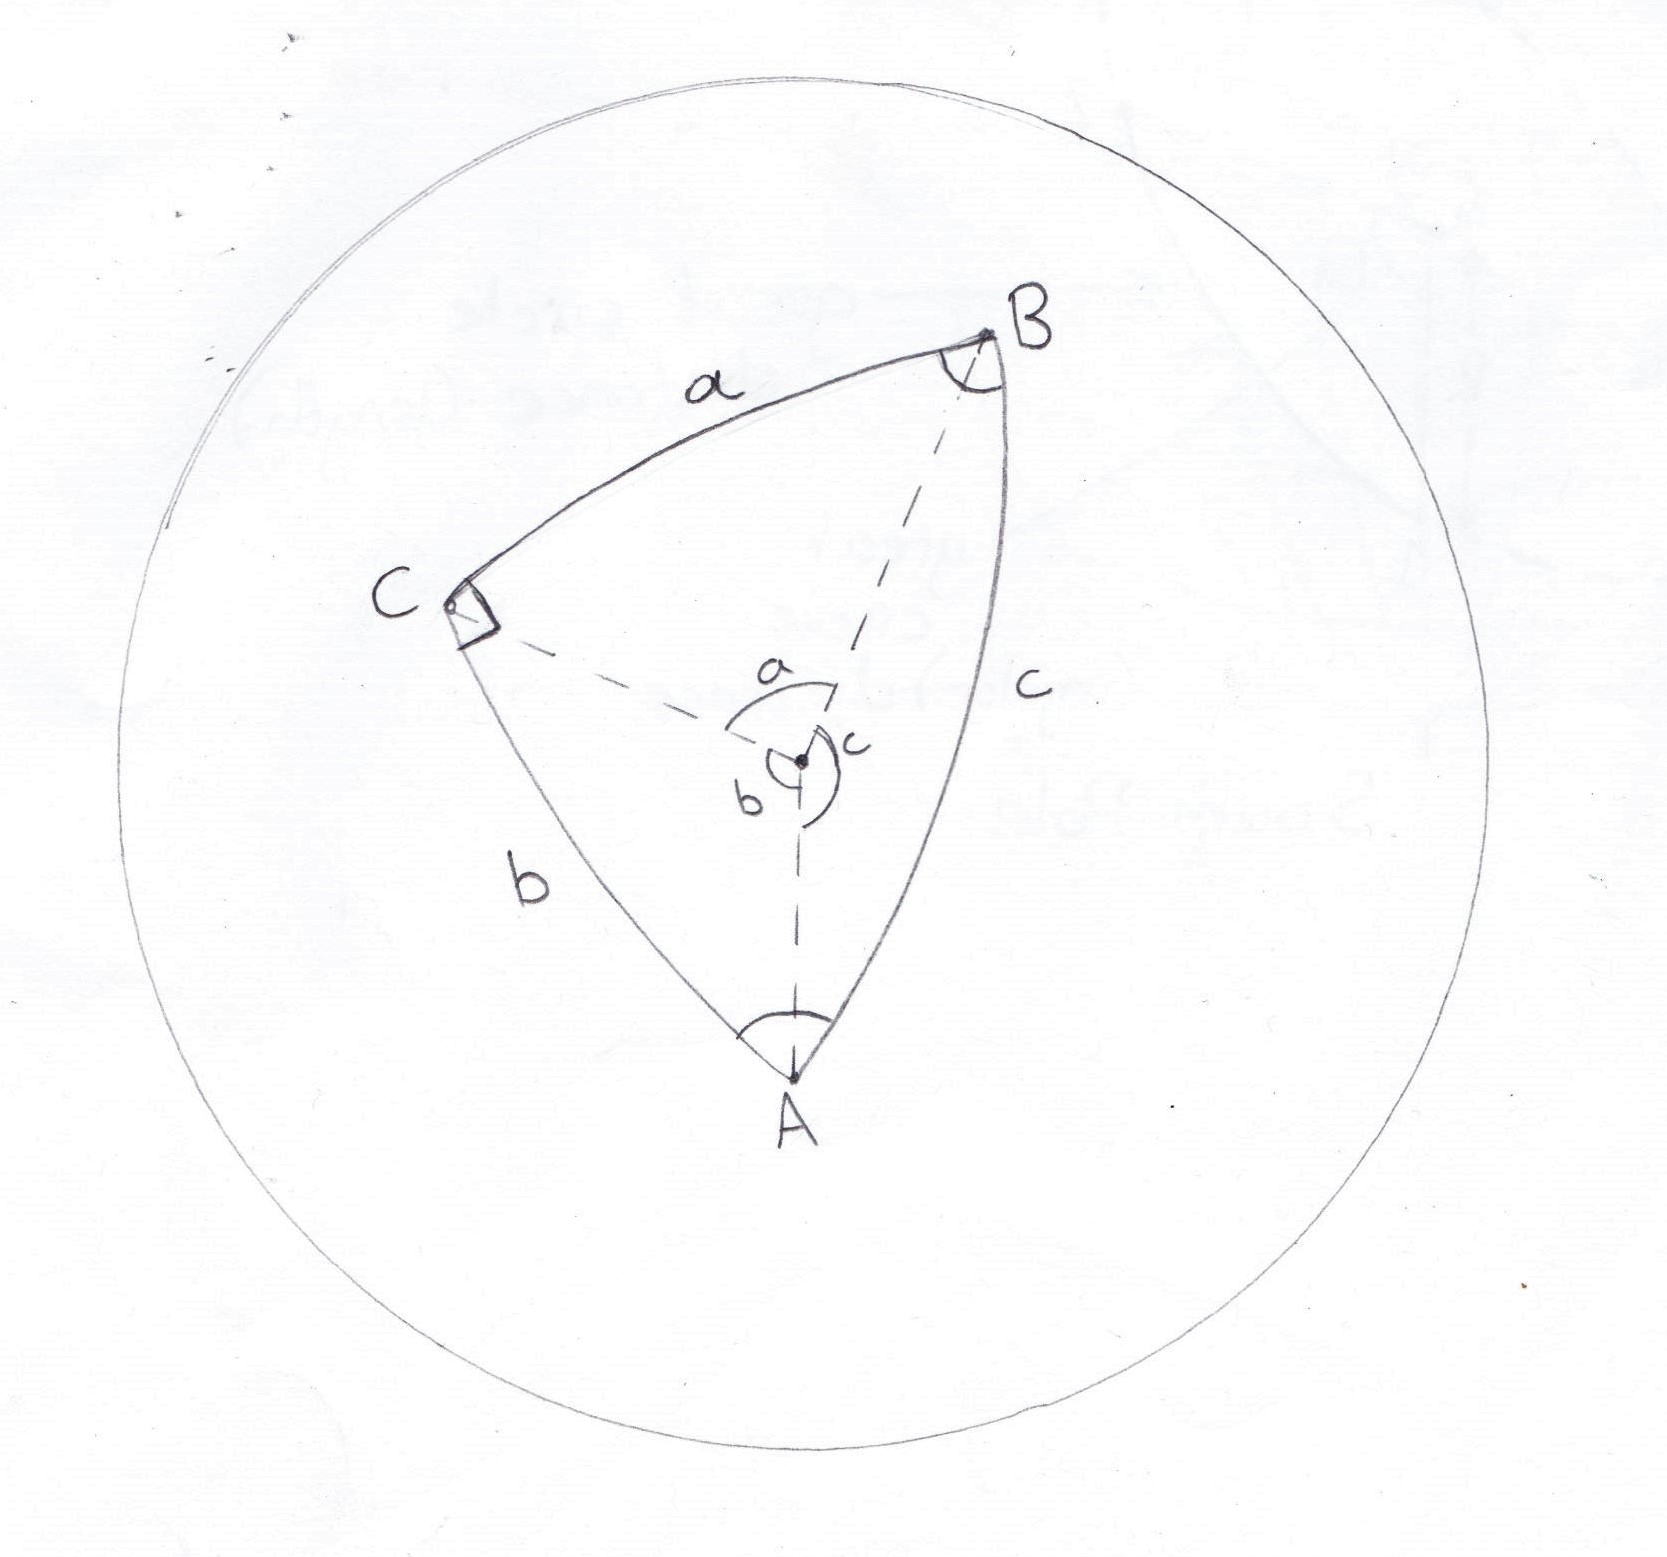 B
a
C
a
c
c
b
b
A